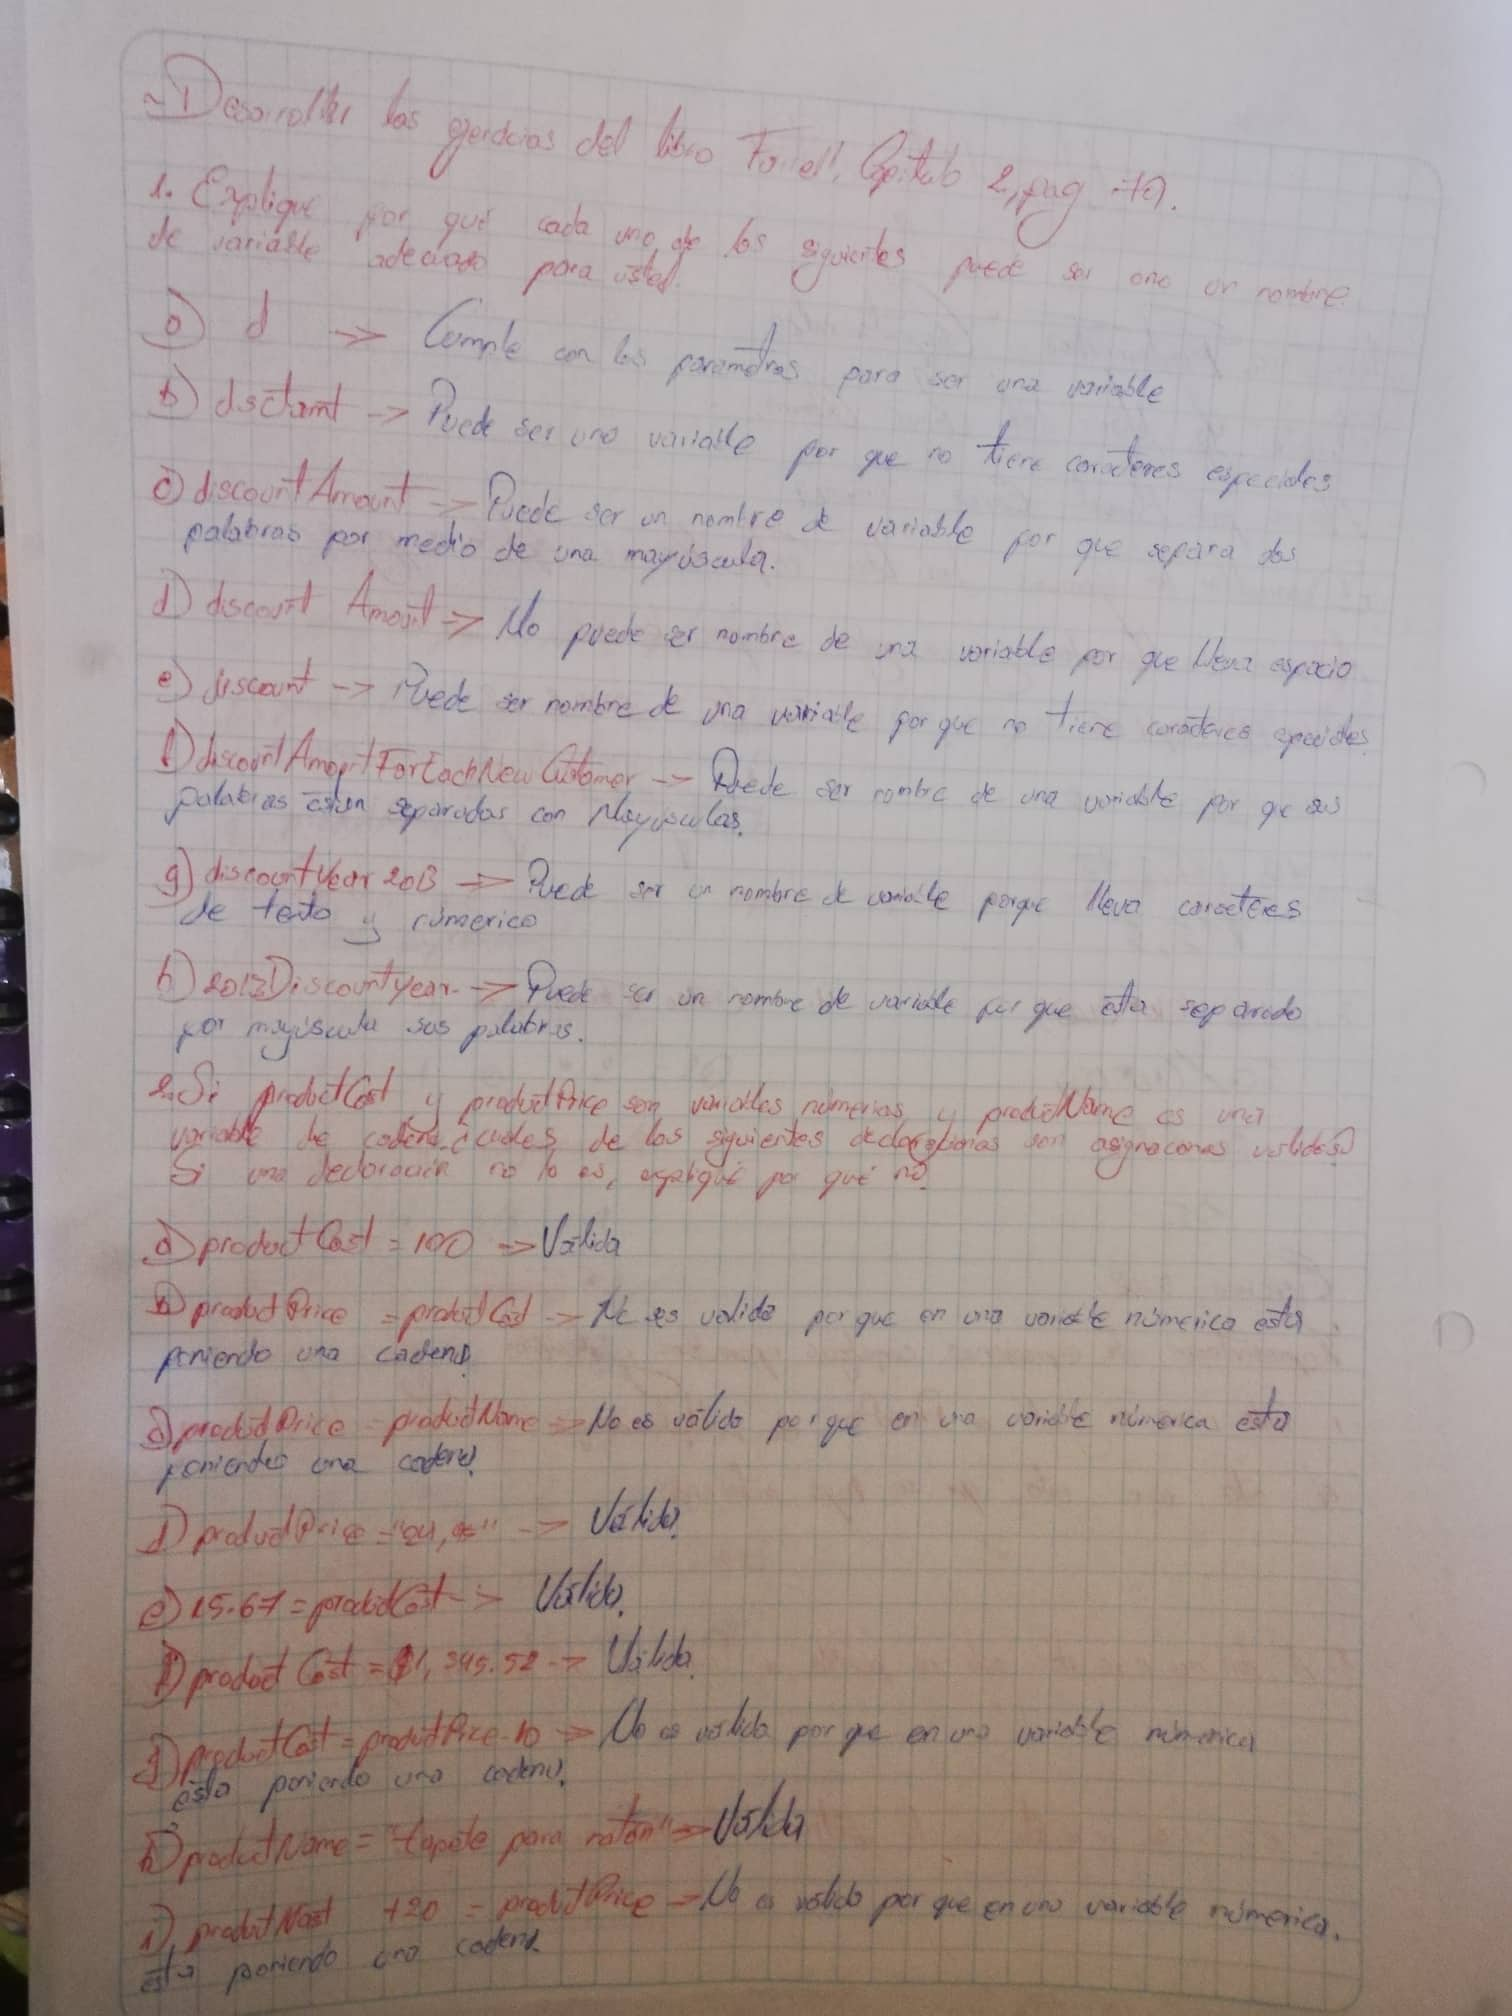 ~ Desarrollar los ejercicios del libro Farrell, Capítulo 2, pag 79.
1. Explique por qué cada uno de los siguientes puede ser o no un nombre
de variable adecuado para usted.
a) d → Cumple con los parametros para ser una variable
b) dsctamt → Puede ser una variable por que no tiene caracteres especiales
c) discountAmount → Puede ser un nombre de variable por que separa dos
palabras por medio de una mayúscula.
d) discount Amount → No puede ser nombre de una variable por que lleva espacio
e) discount → Puede ser nombre de una variable por que no tiene caracteres especiales
f) discountAmountForEachNewCustomer → Puede ser nombre de una variable por que sus
palabras estan separadas con Mayusculas.
g) discountYear2013 → Puede ser un nombre de variable porque lleva caracteres
de texto y númerico
h) 2013Discountyear → Puede ser un nombre de variable por que esta separado
por mayúscula sus palabras.
2. Si productCost y productPrice son variables númerias y productName es una
variable de cadena. ¿cuáles de las siguientes declaraciones son asignaciones validas?
Si una declaración no lo es, explique por qué no.
a) productCost = 100 → Válida
b) productPrice = productCost → No es valida por que en una variable númerica esta
poniendo una cadena.
c) productPrice = productName → No es válido por que en una variable númerica esta
poniendo una cadena.
d) productPrice = "24,95" → Válida.
e) 15.67 = productCost → Válida.
f) productCost = $1,345.52 → Válida.
g) productCost = productPrice - 10 → No es válida por que en una variable númerica
esta poniendo una cadena.
h) productName = "tapete para ratón" → Válida
i) product +20 = productPrice → No es válido por que en una variable númerica.
esta poniendo una cadena.